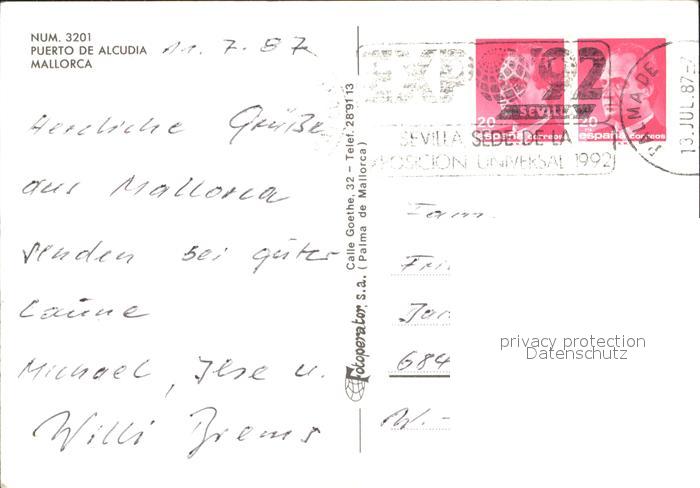 NUM. 3201
PUERTO DE ALCUDIA
MALLORCA
11.7.87
Herzliche Grüße
aus Mallorca
senden bei guter
Laune
Michael, Ilse u.
Willi Brems
Fotoperator, s.a. Calle Goethe, 32 - Telef. 289113
(Palma de Mallorca)
EXPO '92
SEVILLA
SEVILLA SEDE DE LA
EXPOSICION UNIVERSAL 1992
20
españa correos
20
españa correos
PALMA DE
13 JUL. 87
Fam.
684
W.-
privacy protection
Datenschutz